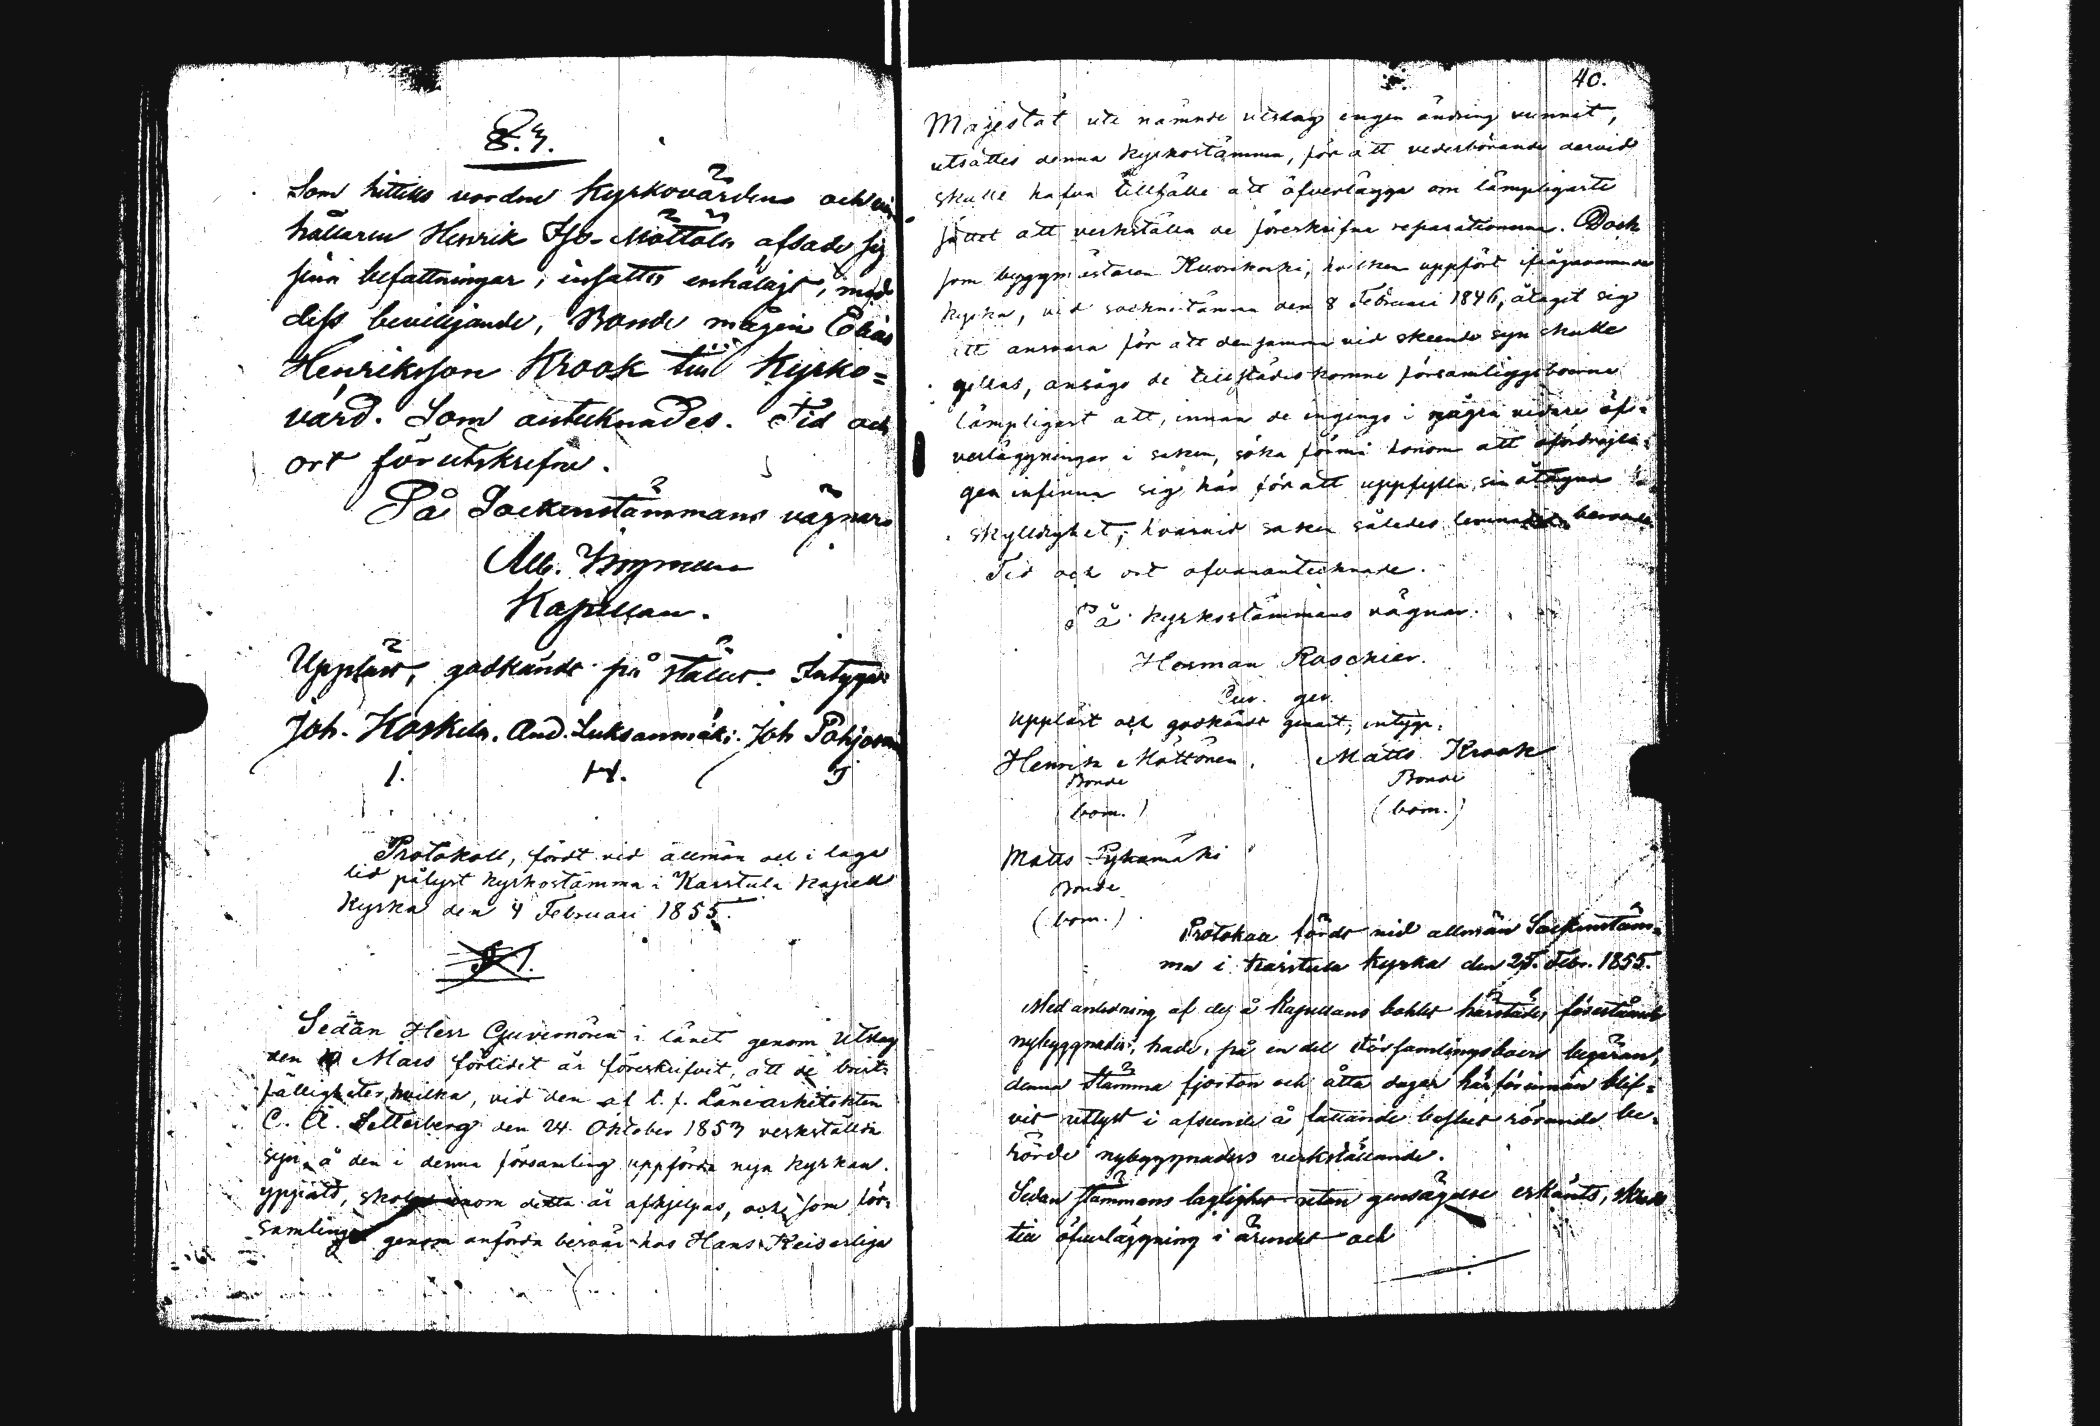 §. 3.
Som hittils vordne Kyrkovärden och
hållaren Henrik Iso-Möttölä, afsade sig
sina befattningar; insattes enhäligt, med
dess beviljande, Bonde mågen Elias
Henriksson Krook till Kyrko=
värd. Som antecknades. Tid och
ort förutskrefne.
På Sockenstämmans vägnar
Alb.
Kapellan.
Uppläst, godkändt på stället. Intyga:
Joh. Koskela. And. Luksanmäki. Joh Pohjonen
Protokoll, fördt vid allmän och i laga
tid pålyst kyrkostämma i Karstula kapell
kyrka den 4 Februari 1855.
§ 1.
Sedän Herr Guvernören i länet genom Utslag
den Mars förlidet år föreskrifvit, att de brist-
fälligheter, hvilka, vid den af t. f. Länearkitekten
C. A. Setterberg den 24 Oktober 1853 verkställda
syn å den i denna församling uppförda nya kyrkan.
yppats, skola inom detta år afhjelpas, och som för-
samlingen genom anförda besvär hos Hans Keiserliga
40.
Majestät uti nämnde utslag ingen ändring vunnit,
utsattes denna kyrkostämma, för att vederbörande dervid
skulle hafva tillfälle att öfverlägga om lämpligaste
sättet att verkställa de föreskrifne reparationerna. Dock
som byggmästaren Kuorikoski, hvilken uppfört ifrågavarande
kyrka, vid sockenstämma den 8 Februari 1846, åtagit sig
att ansvara för att densamma vid skeende syn skulle
gillas, ansågo de tillstädeskomne församlingsboerne
lämpligast att, innan de ingingo i några vidare öf-
verläggningar i saken, söka förmå honom att ofördröjli-
gen infinna sig här för att uppfylla sin åtagna
skyldighet; hvarvid saken således lemnades beroende
Tid och ort ofvanantecknade.
På kyrkostämmans vägnar.
Herman Roschier.
uppläst och godkändt genast; intyga:
Henrik Möttönen. Matts Krook
Bonde Bonde
(bom.) (bom.)
Matts Pykamäki
Bonde
(bom.)
Protokoll fördt vid allmän Sockenstäm-
ma i Karstula kyrka den 25. Febr. 1855.
Med anledning af dej å Kapellans bohlet härstädes förestående
nybyggnader, hade, på en del Församlingsboers begäran,
denna Stämma fjorton och åtta dagar härförinnan blif-
vit utlyst i afseende å fattande beslut rörande be-
rörde nybyggnaders verkställande.
Sedan stämmans laglighet utan gensägelse erkänts, skreds
till öfverläggning i ärendet och